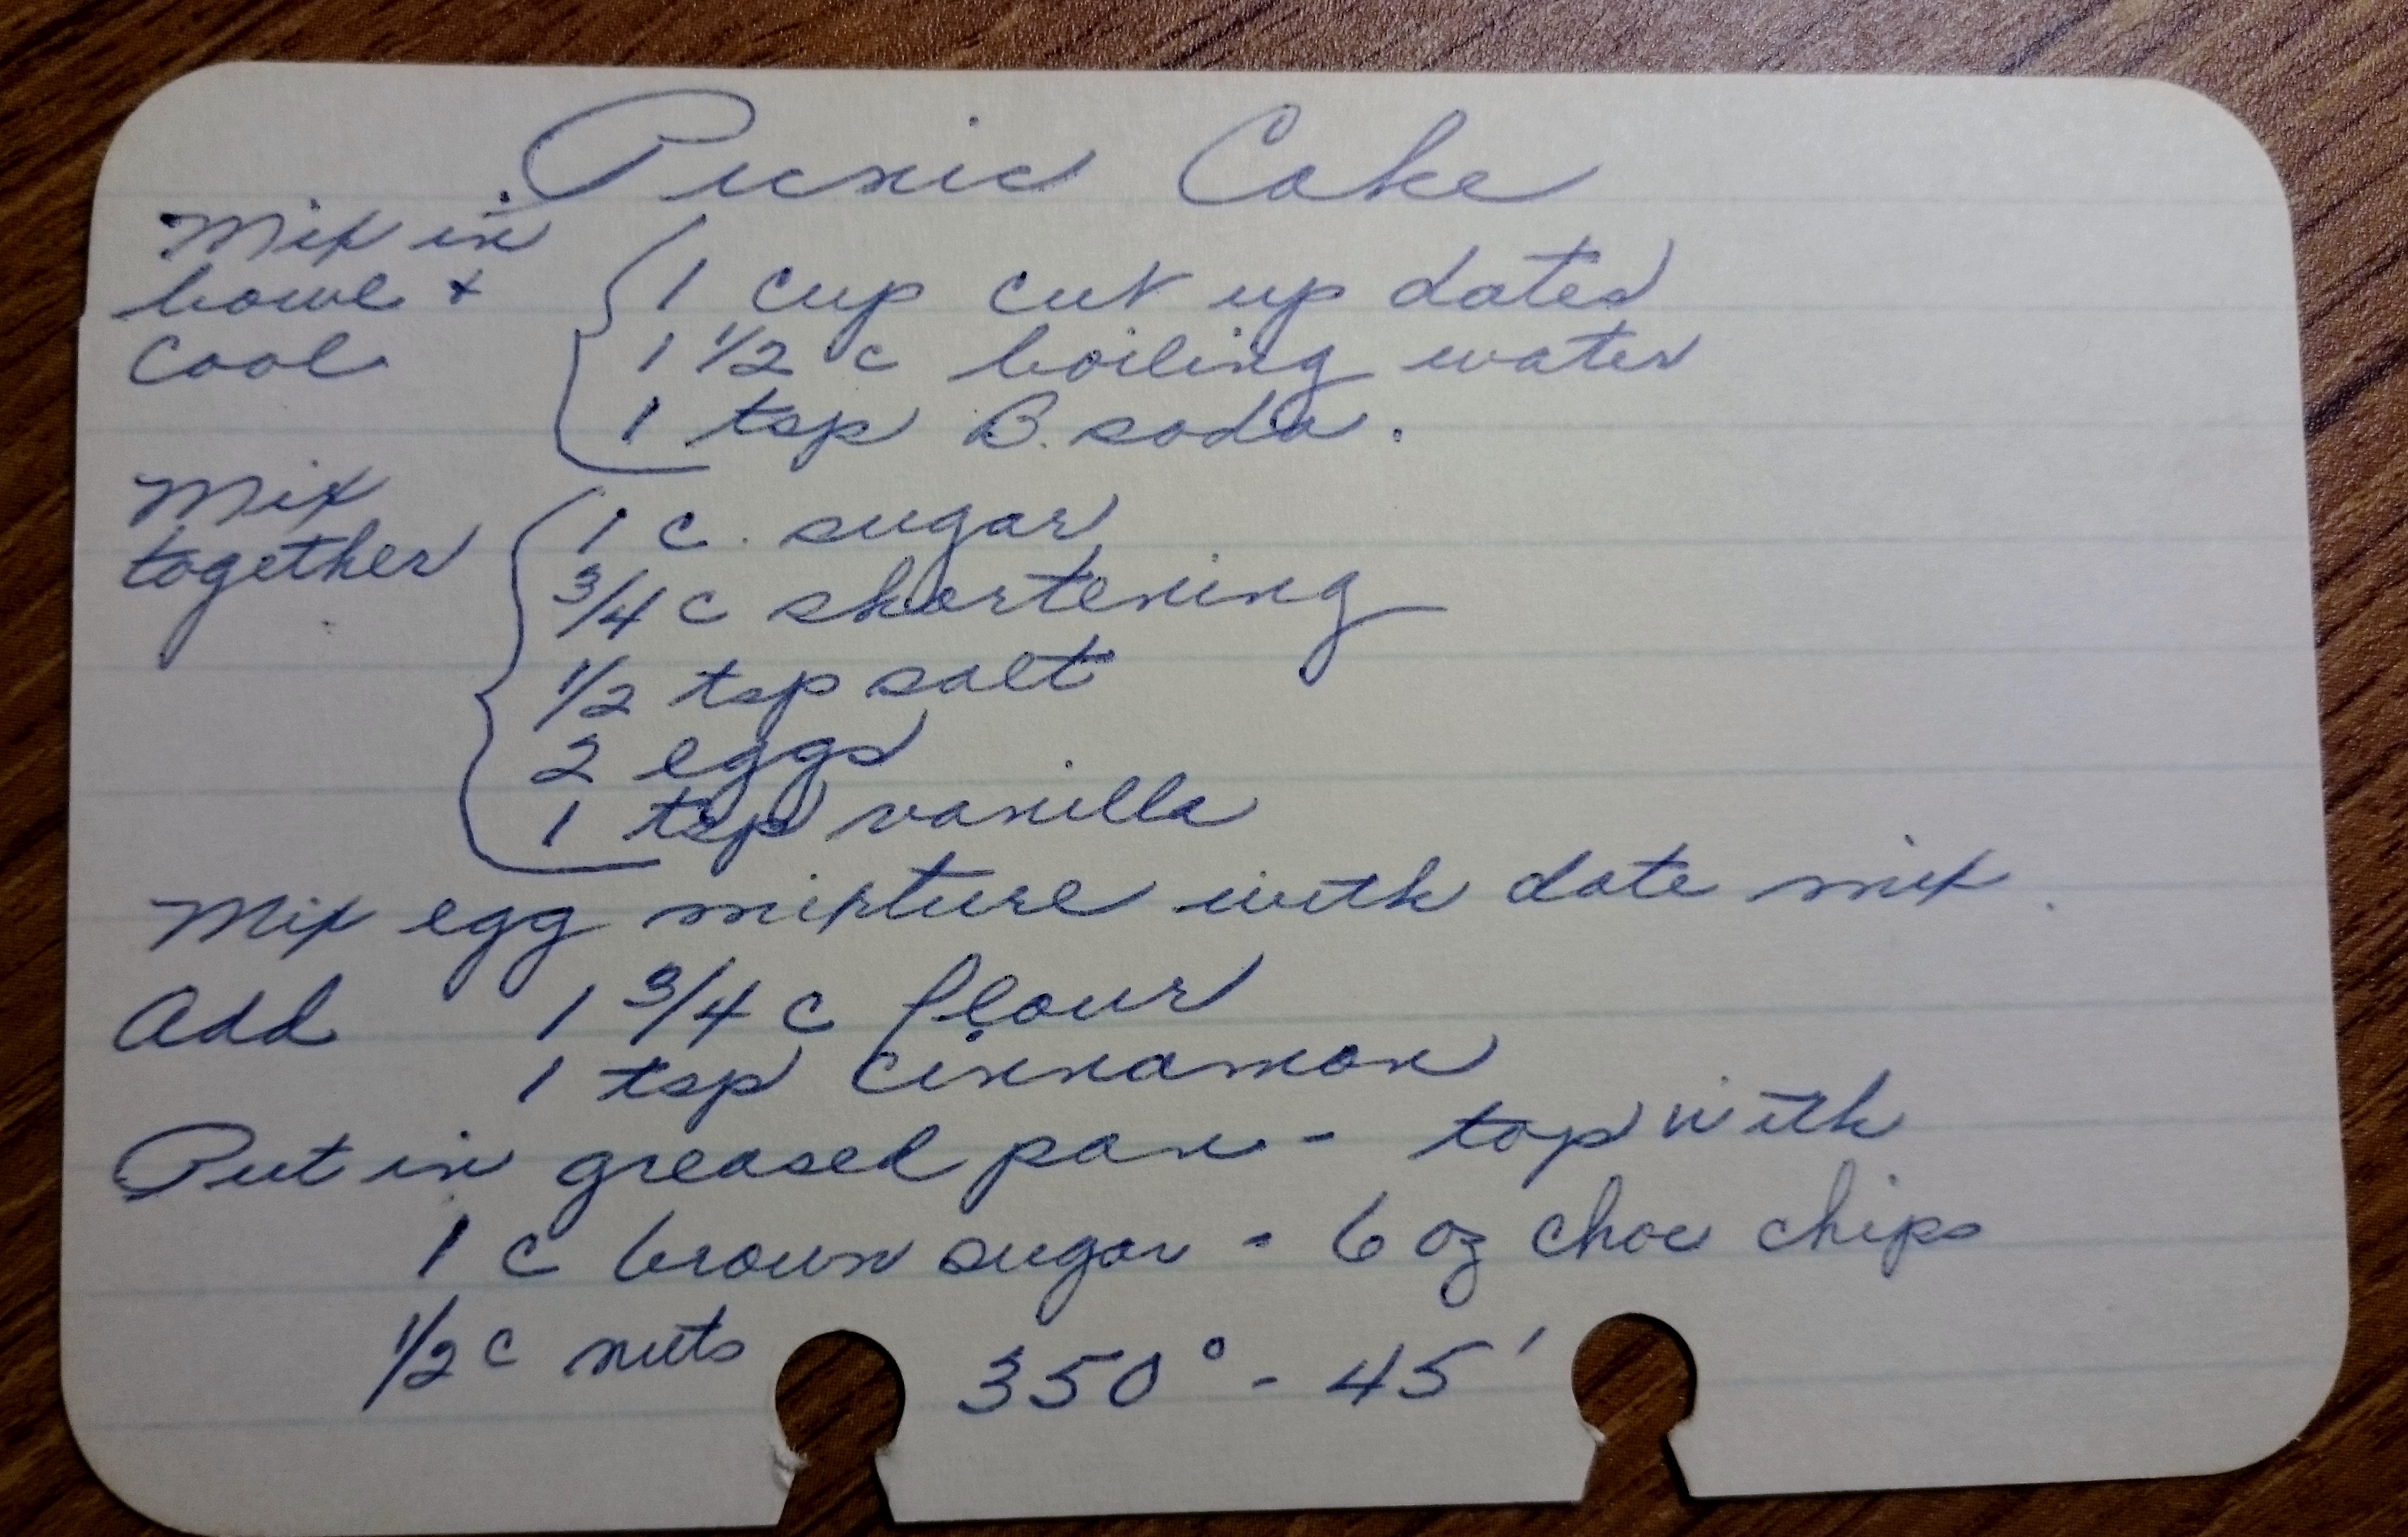 Picnic Cake
Mix in
bowl +
cool
1 cup cut up dates
1 1/2 c boiling water
1 tsp B. soda.
Mix
together
1 c. sugar
3/4 c shortening
1/2 tsp salt
2 eggs
1 tsp vanilla
Mix egg mixture with date mix.
Add 1 3/4 c flour
1 tsp cinnamon
Put in greased pan - top with
1 c brown sugar - 6 oz choc chips
1/2 c nuts 350° - 45'